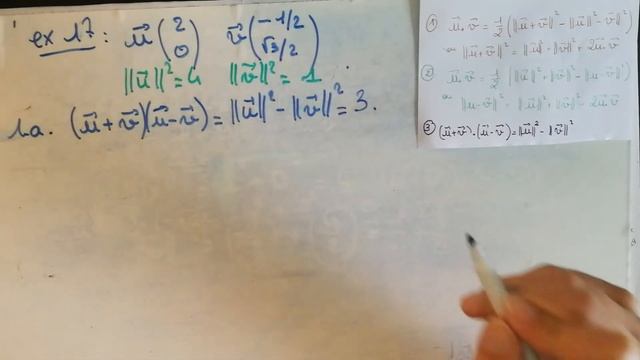 ex 17 : u⃗ (2 0) v⃗ (-1/2 √3/2)
||u⃗||² = 4 ||v⃗||² = 1
1.a. (u⃗+v⃗)(u⃗-v⃗) = ||u⃗||² - ||v⃗||² = 3.
① u⃗.v⃗ = 1/2 (||u⃗+v⃗||² - ||u⃗||² - ||v⃗||²)
||u⃗+v⃗||² = ||u⃗||² + ||v⃗||² + 2u⃗.v⃗
② u⃗.v⃗ = 1/2 (||u⃗||² + ||v⃗||² - ||u⃗-v⃗||²)
||u⃗-v⃗||² = ||u⃗||² + ||v⃗||² - 2u⃗.v⃗
③ (u⃗+v⃗).(u⃗-v⃗) = ||u⃗||² - ||v⃗||²